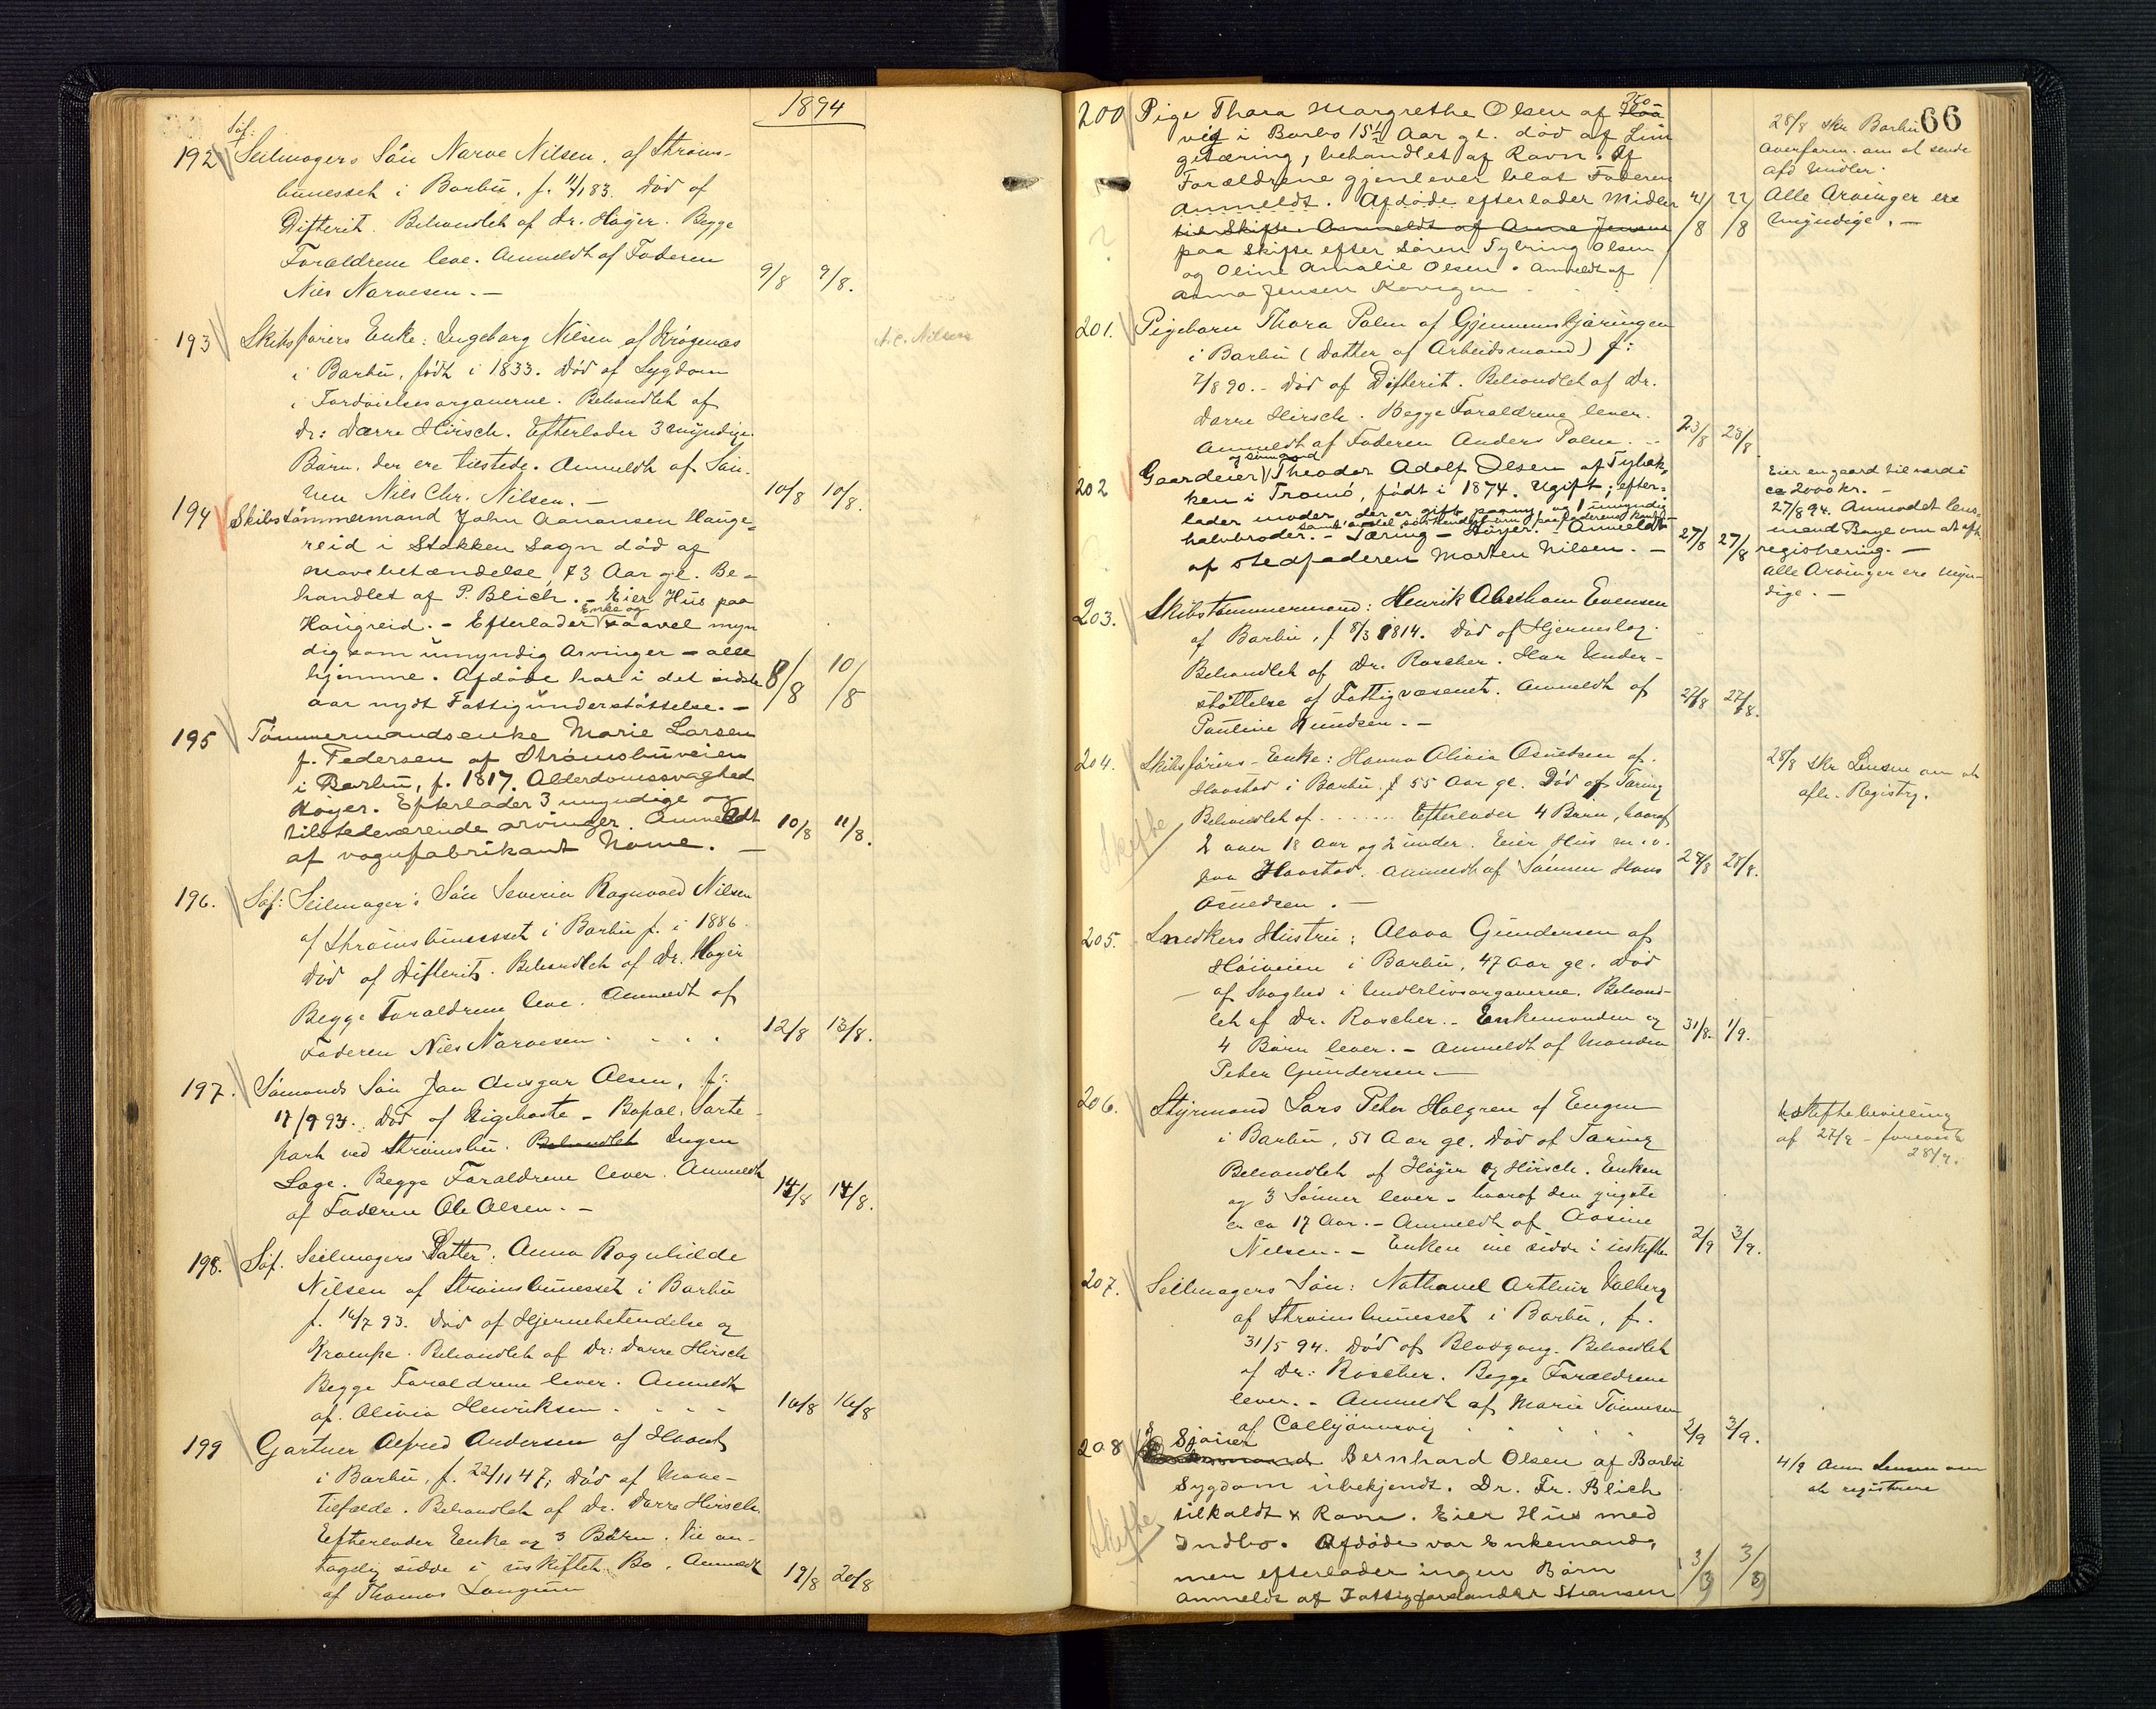 1894
Søf:
192 Seilmagers Søn Narve Nilsen, af Strøms-
bunesset i Barbu, f. 11/7 83. Død af
Difterit. Behandlet af Dr. Høyer. Begge
Forældrene leve. Anmeldt af Faderen
Niels Narvesen. — 9/8 9/8.
193 Skibsførers Enke: Ingeborg Nilsen af Krøgenæs
i Barbu, født i 1833. Død af Sygdom
i Fordøielsesorganerne. Behandlet af
Dr: Darre Hirsch. Efterlader 3 myndige
Børn, der ere tilstede. Anmeldt af Søn-
nen Niels Chr. Nilsen. — 10/8 10/8.
N. C. Nilsen
194 Skibstømmermand John Aanonsen Hauge-
reid i Stokken Sogn død af
Mavebetændelse, 73 Aar gl. Be-
handlet af P. Blich. — Eier Hus paa
Haugreid. — Efterlader Enke og saavel myn
dig som umyndig Arvinger — alle
hjemme. Afdøde har i det sidste
aar nydt Fattigunderstøttelse. — 8/8 10/8
195 Tømmermandsenke Marie Larsen
f. Pedersen af Strømsbuveien
i Barbu, f. 1817. Alderdomssvaghed
Høyer. Efterlader 3 myndige og
tilstedeværende arvinger. Anmeldt
af vognfabrikant Nome. — 10/8 11/8.
196. Søf: Seilmagers Søn Severin Ragnvald Nilsen
af Strømsbunesset i Barbu f. i 1886.
Død af Difterit. Behandlet af Dr. Høyer
Begge Forældrene leve. Anmeldt af
Faderen Niels Narvesen. 12/8 13/8.
197. Sømands Søn Jan Ansgar Olsen, f.
17/9 93. Død af Kighoste — Bopæl: Sorte-
park ved Strømsbu. Behandlet Ingen
Læge. Begge Forældrene lever. Anmeldt
af Faderen Ole Olsen. — 14/8 14/8.
198. Søf. Seilmagers Datter: Anna Ragnhilde
Nilsen af Strømsbunesset i Barbu
f. 16/7 93. Død af Hjernebetendelse og
Krampe. Behandlet af Dr: Darre Hirsch
Begge Forældrene lever. Anmeldt
af. Olivia Henriksen 16/8 16/8
199 Gartner Alfred Andersen af Havst
i Barbu, f. 22/11 47, Død af Mave-
tilfælde. Behandlet af Dr. Darre Hirsch
Efterlader Enke og 3 Børn. Vil an-
tagelig sidde i uskiftet Bo. Anmeldt
af Thomas Langum 19/8 20/8
66
200 Pige Thara Margrethe Olsen af
vig i Barbo 15½ Aar gl. død af Lun
getæring, behandlet af Ravn. Af
Forældrene gjenlever blot Faderen
anmeldt. Afdøde efterlader Midler 21/8 22/8
til Skifte. Anmeldt af Anne Jensen
paa Skifte efter Søren Tybring Olsen
og Oline Amalie Olsen. Anmeldt af
Anna Jensen Kovigen
28/8 skr Barbu
Overform. om at sende
afd Midler.
Alle Arvinger ere
Myndige. —
201. Pigebarn Thora Palm af Gjennemskjæringen
i Barbu (Datter af Arbeidsmand) f:
7/8 90. — Død af Difterit. Behandlet af Dr.
Darre Hirsch. Begge Forældrene lever.
Anmeldt af Faderen Anders Palm. — 23/8 23/8
og sømand
202 Gaardeier Theodor Adolf Olsen af Tybæk,
ken i Tromø, født i 1874. Ugift; efter-
lader moder, der er gift paany, og 1 umyndig
halvbroder. — Tæring — Høyer. — Anmeldt
af stedfaderen Morten Nilsen. — 27/8 27/8
Eier en gaard til værdi
ca 2000 kr. —
27/8 94. Anmodet lens-
mand Bage om at aft.
registrering. —
alle Arvinger ere myn-
dige. —
203. Skibstømmermand: Henrik Abraham Evensen
af Barbu, f 8/3 1814. Død af Hjerneslag.
Behandlet af Dr. Roscher. Har Under-
støttelse af Fattigvæsenet. Anmeldt af
Pauline Knudsen. — 27/8 27/8.
204. Skibsførers-Enke: Hanna Olivia Osuldsen af.
Havstad i Barbu, f 55 Aar gl. Død af Tæring
Behandlet af ....... Efterlader 4 Børn, hvoraf
2 over 18 Aar og 2 under. Eier Hus m.v.
paa Havstad. Anmeldt af Sønnen Hans
Osuldsen. — 28/8 28/8.
Skifte
28/8 skr Lensm om at
afh. Registrg.
205. Snedkers Hustru: Alava Gundersen af
Høiveien i Barbu, 47 Aar gl. Død
af Svaghed i Underlivsorganerne. Behand-
let af Dr. Roscher. — Enkemanden og
4 Børn lever. — Anmeldt af Manden
Peter Gundersen. — 31/8 1/9.
206. Styrmand Lars Peter Holgren af Engen
i Barbu, 51 Aar gl. Død af Tæring
Behandlet af Høyer og Hirsch. Enken
og 3 Sønner lever — hvoraf den yngste
er ca 17 Aar. — Anmeldt af Aasine
Nilsen. — Enken vil sidde i uskiftet 2/9 3/9.
Uskiftebevilling
af 27/9 — forevist
28/9.
207. Seilmagers Søn: Nathanel Arthur Valberg
af Strømsbunesset i Barbu, f.
31/5 94. Død af Blodgang. Behandlet
af Dr: Roscher. Begge Forældrene
lever. — Anmeldt af Marie Tønnesen
af Calljønsvig 2/9 3/9.
208 Sjøiser
Bernhard Olsen af Barbu
Sygdom ubekjendt. Dr. Fr. Blich
tilkaldt & Ravn. Eier Hus med
Indbo. Afdøde var Enkemand,
men efterlader ingen Børn
Anmeldt af Fattigforstander Stiansen 3/9 3/9
Skifte
4/9 Anm Lensm om
at registrere